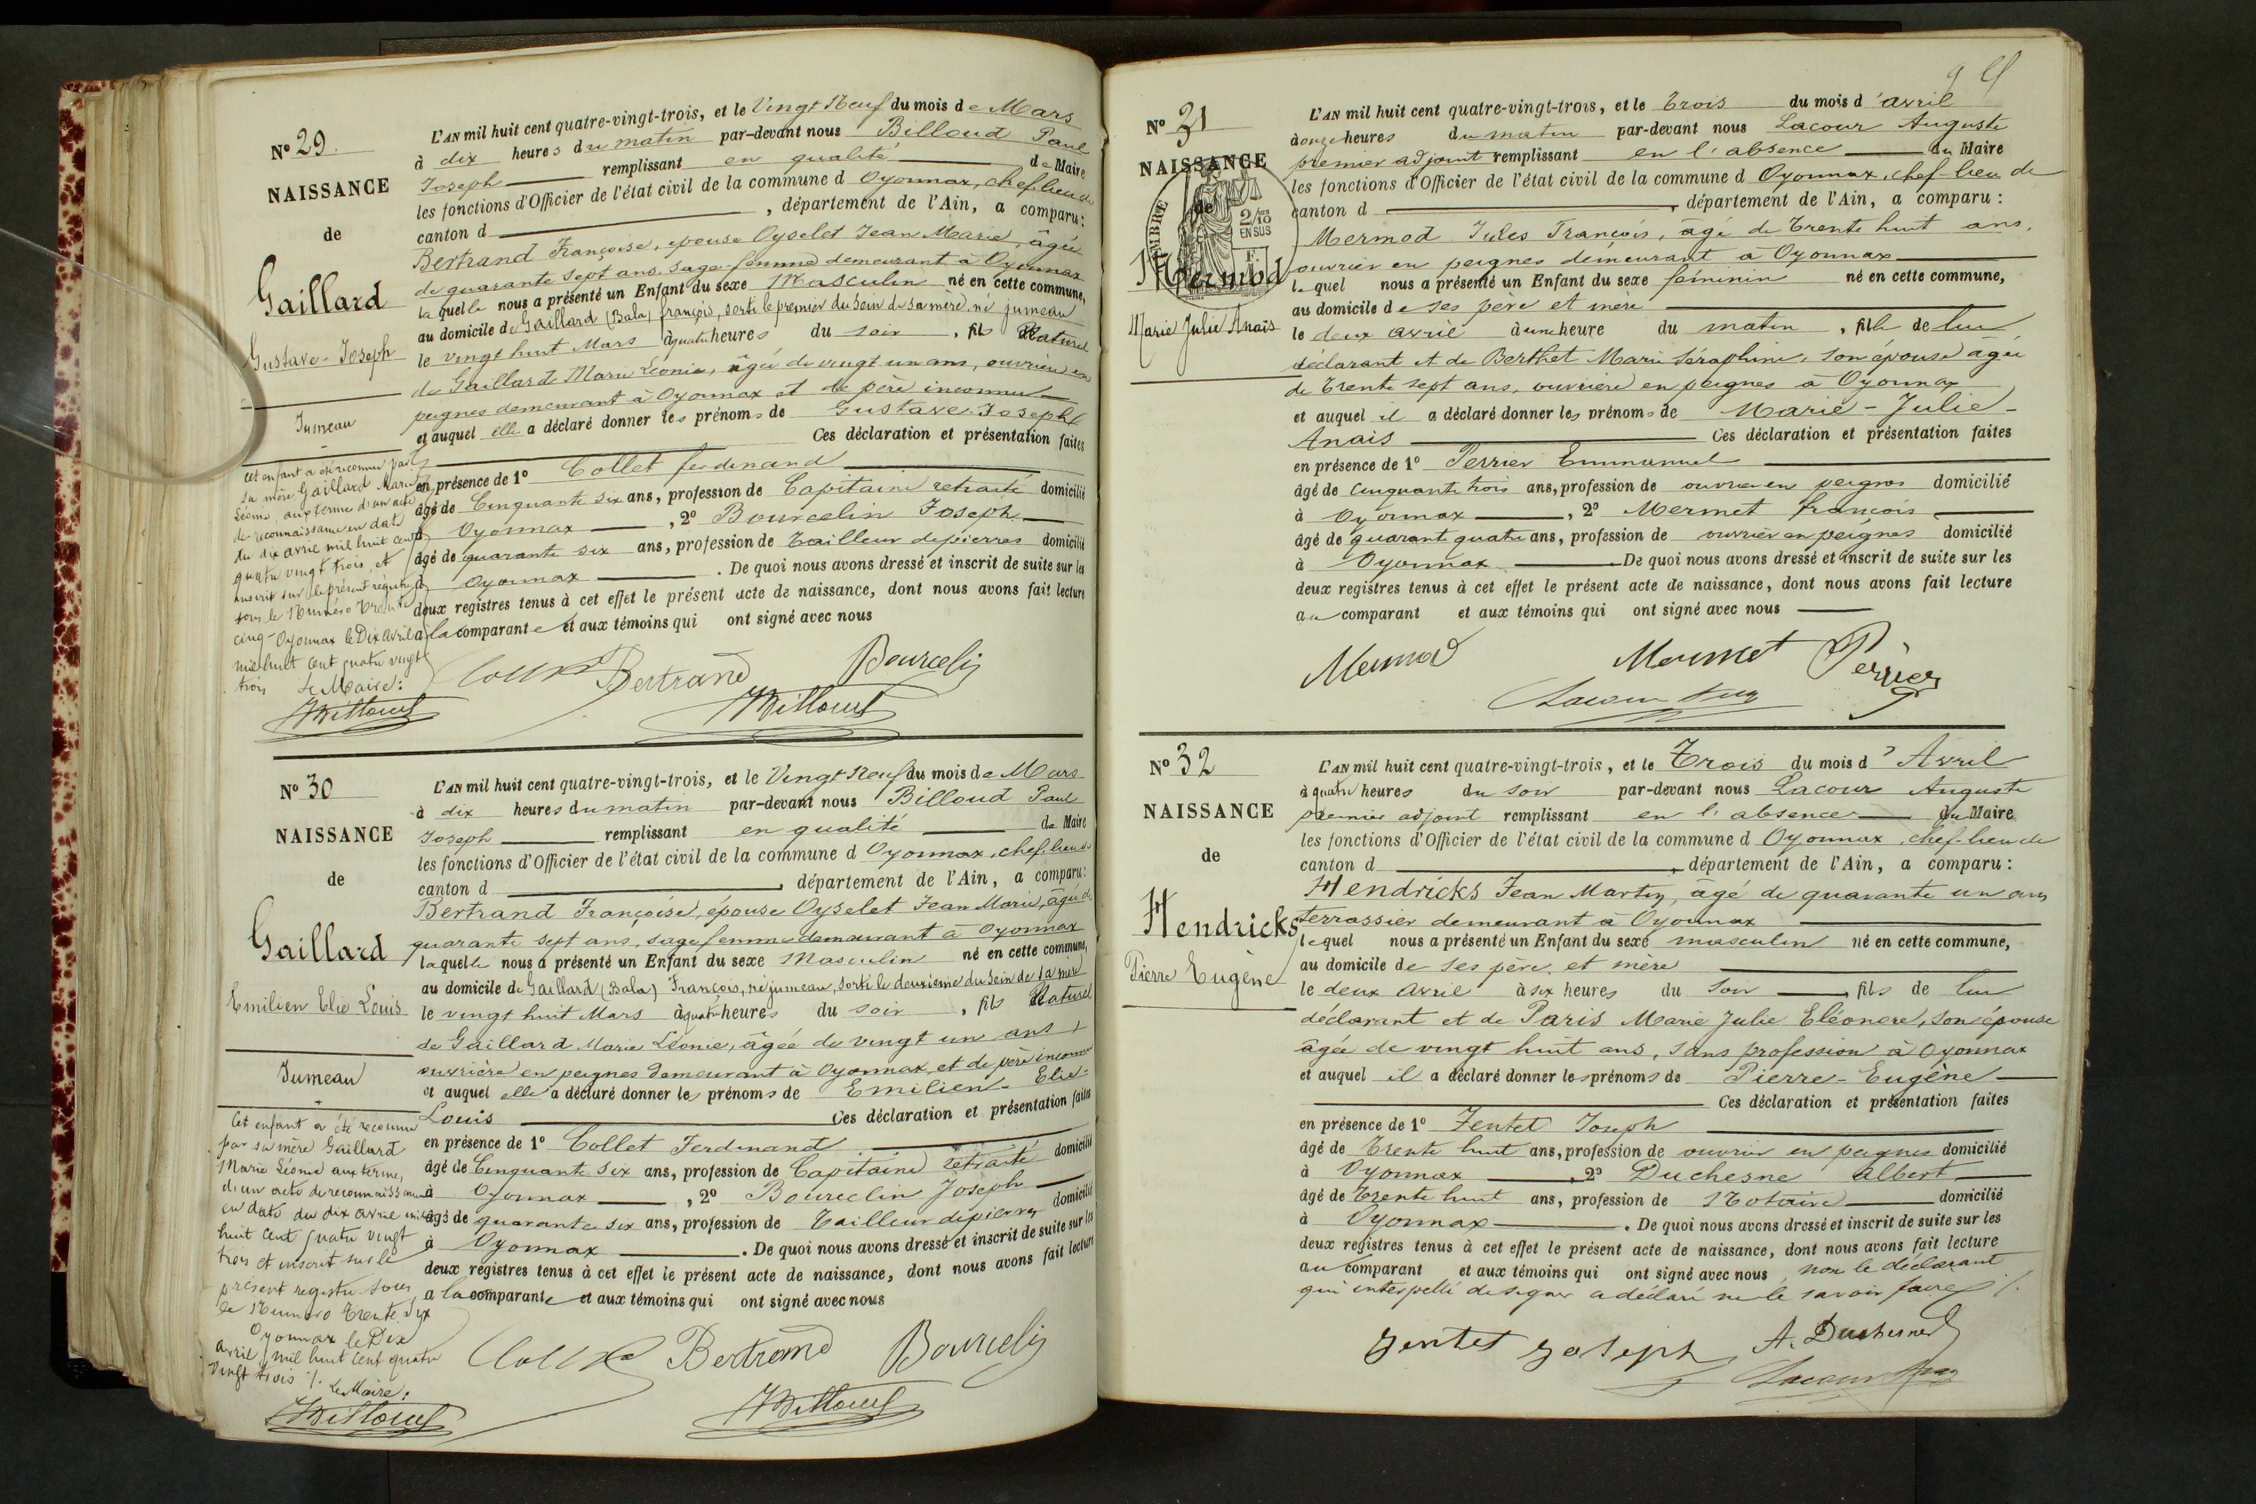 N° 29
NAISSANCE
de
Gaillard
Gustave-Joseph
Jumeau
Cet enfant a été reconnu par
sa mère Gaillard Marie
Léonie, aux terme d'un acte
de reconnaissance en date
du dix avril mil huit cent
quatre vingt trois, et
inscrit sur le présent registre
sous le Numéro Trente
cinq - Oyonnax le Dix avril
mil huit cent quatre vingt
trois Le Maire:
L'AN mil huit cent quatre-vingt-trois, et le Vingt Neuf du mois de Mars
à dix heures du matin par-devant nous Billoud Paul
Joseph remplissant en qualité de Maire
les fonctions d'Officier de l'état civil de la commune d Oyonnax, chef-lieu de
canton d , département de l'Ain, a comparu:
Bertrand Françoise, épouse Oyselet Jean Marie, âgée
de quarante sept ans, sage-femme demeurant à Oyonnax
laquelle nous a présenté un Enfant du sexe Masculin né en cette commune,
au domicile de Gaillard (Bala) françois, sorti le premier du sein de sa mère, né jumeau
le vingt huit Mars à quatre heures du soir , fils Naturel
de Gaillard Marie Léonie, âgée de vingt un ans, ouvrière en
peignes demeurant à Oyonnax et de père inconnu
et auquel elle a déclaré donner les prénoms de Gustave-Joseph
Ces déclaration et présentation faites
en présence de 1° Collet ferdinand
âgé de Cinquante six ans, profession de Capitaine retraité domicilié
à Oyonnax , 2° Bourcelin Joseph
âgé de quarante six ans, profession de Tailleur de pierres domicilié
à Oyonnax . De quoi nous avons dressé et inscrit de suite sur les
deux registres tenus à cet effet le présent acte de naissance, dont nous avons fait lecture
a la comparante et aux témoins qui ont signé avec nous
Collet Bertrand Bourcelin
N° 30
NAISSANCE
de
Gaillard
Emilien Elie Louis
Jumeau
Cet enfant a été reconnu
par sa mère Gaillard
Marie Léonie aux terme,
d'un acte de reconnaissance
en date du dix avril mil
huit cent quatre vingt
trois et inscrit sur le
présent registre sous
le Numéro Trente Six
Oyonnax le Dix
avril mil huit cent quatre
vingt trois /. Le Maire:
L'AN mil huit cent quatre-vingt-trois, et le Vingt Neuf du mois de Mars
à dix heures du matin par-devant nous Billoud Paul
Joseph remplissant en qualité de Maire
les fonctions d'Officier de l'état civil de la commune d Oyonnax, chef-lieu de
canton d , département de l'Ain, a comparu:
Bertrand Françoise, épouse Oyselet Jean Marie, âgée de
quarante sept ans, sage femme demeurant à Oyonnax
laquelle nous a présenté un Enfant du sexe Masculin né en cette commune,
au domicile de Gaillard (Bala) François, né jumeau, sorti le deuxième du sein de sa mère
le vingt huit Mars à quatre heures du soir , fils Naturel
de Gaillard Marie Léonie, âgée de vingt un ans
ouvrière en peignes demeurant à Oyonnax, et de père inconnu
et auquel elle a déclaré donner les prénoms de Emilien-Elie-
Louis Ces déclaration et présentation faites
en présence de 1° Collet Ferdinand
âgé de Cinquante Six ans, profession de Capitaine retraité domicilié
à Oyonnax , 2° Bourcelin Joseph
âgé de quarante six ans, profession de Tailleur de pierres domicilié
à Oyonnax . De quoi nous avons dressé et inscrit de suite sur les
deux registres tenus à cet effet le présent acte de naissance, dont nous avons fait lecture
a la comparante et aux témoins qui ont signé avec nous
Collet Bertrand Bourcelin
N° 31
NAISSANCE
de
2/10 EN SUS
Mermod
Marie Julie Anaïs
L'AN mil huit cent quatre-vingt-trois, et le Trois du mois d'avril
à onze heures du matin par-devant nous Lacour Auguste
premier adjoint remplissant en l'absence du Maire
les fonctions d'Officier de l'état civil de la commune d Oyonnax, chef-lieu de
canton d , département de l'Ain, a comparu:
Mermod Jules François, âgé de Trente huit ans,
ouvrier en peignes demeurant à Oyonnax
lequel nous a présenté un Enfant du sexe féminin né en cette commune,
au domicile de ses père et mère
le deux avril à une heure du matin , fille de lui
déclarant et de Berthet Marie Séraphine, son épouse âgée
de Trente sept ans, ouvrière en peignes à Oyonnax
et auquel il a déclaré donner les prénoms de Marie-Julie-
Anaïs Ces déclaration et présentation faites
en présence de 1° Perrier Emmanuel
âgé de cinquante trois ans, profession de ouvrier en peignes domicilié
à Oyonnax , 2° Mermet françois
âgé de quarante quatre ans, profession de ouvrier en peignes domicilié
à Oyonnax De quoi nous avons dressé et inscrit de suite sur les
deux registres tenus à cet effet le présent acte de naissance, dont nous avons fait lecture
au comparant et aux témoins qui ont signé avec nous
Mermod Mermet Perrier
N° 32
NAISSANCE
de
Hendricks
Pierre Eugène
L'AN mil huit cent quatre-vingt-trois, et le Trois du mois d'Avril
à quatre heures du soir par-devant nous Lacour Auguste
premier adjoint remplissant en l'absence du Maire
les fonctions d'Officier de l'état civil de la commune d Oyonnax, chef-lieu de
canton d , département de l'Ain, a comparu:
Hendricks Jean Martin, âgé de quarante un ans
terrassier demeurant à Oyonnax
lequel nous a présenté un Enfant du sexe masculin né en cette commune,
au domicile de ses père et mère
le deux avril à six heures du soir , fils de lui
déclarant et de Paris Marie Julie Eléonore, son épouse
âgée de vingt huit ans, sans profession à Oyonnax
et auquel il a déclaré donner les prénoms de Pierre-Eugène
Ces déclaration et présentation faites
en présence de 1° Jentet Joseph
âgé de Trente huit ans, profession de ouvrier en peignes domicilié
à Oyonnax , 2° Duchesne Albert
âgé de Trente huit ans, profession de Notaire domicilié
à Oyonnax . De quoi nous avons dressé et inscrit de suite sur les
deux registres tenus à cet effet le présent acte de naissance, dont nous avons fait lecture
au comparant et aux témoins qui ont signé avec nous, non le déclarant
qui interpellé de signer a déclaré ne le savoir faire /.
Jentet Joseph A. Duchesne